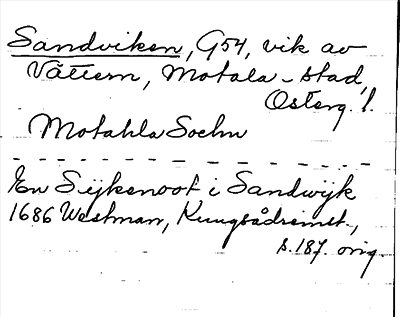 Sandviken, G54, vik av
Vättern, Motala - stad,
Österg. l.
Motahla Sochn
En Sijkenoot i Sandwijk
1686 Westman, Kungsådremt.,
s. 187. orig.